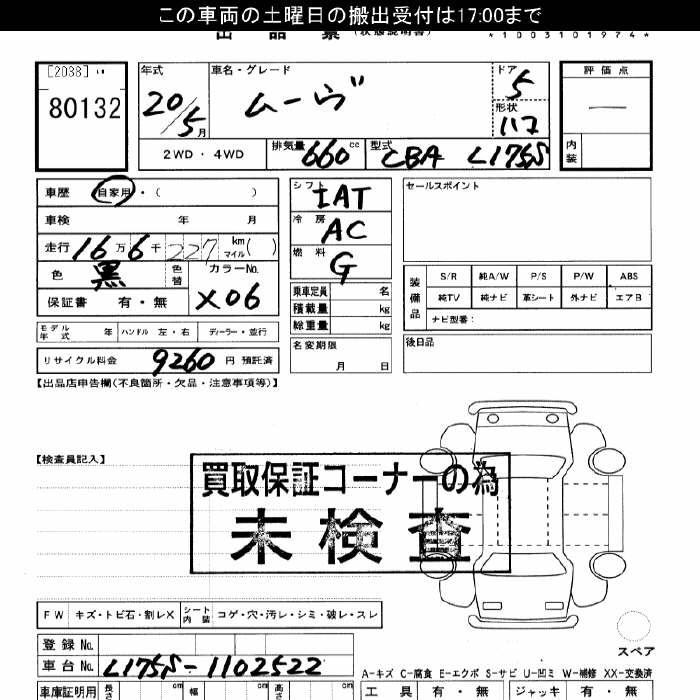 この車両の土曜日の搬出受付は17:00まで
出品票 (状態説明書)
*1003101974*
[2038]
80132
年式 20/5月
車名・グレード ムーヴ
ドア 5
形状
2WD・4WD
排気量 660 cc
型式 CBA L175S
評価点
―
内装
車歴 自家用・( )
車検 年 月
走行 16万6千227 km マイル( )
色 黒 色替 カラーNo. X06
保証書 有・無
モデル年式 年 ハンドル 左・右 ディーラー・並行
リサイクル料金 9260 円 預託済
シフト IAT
冷房 AC
燃料 G
乗車定員 名
積載量 kg
総重量 kg
名変期限
月 日
セールスポイント
装備品
S/R 純A/W P/S P/W ABS
純TV 純ナビ 革シート 外ナビ エアB
ナビ型番:
後日品
【出品店申告欄(不良箇所・欠品・注意事項等)】
【検査員記入】
買取保証コーナーの為
未検査
FW キズ・トビ石・割レX シート内装 コゲ・穴・汚レ・シミ・破レ・スレ
スペア
登録No.
車台No. L175S-1102522
A-キズ C-腐食 E-エクボ S-サビ U-凹ミ W-補修 XX-交換済
車庫証明用 長さ cm 幅 cm 高さ cm
工具 有・無 ジャッキ 有・無